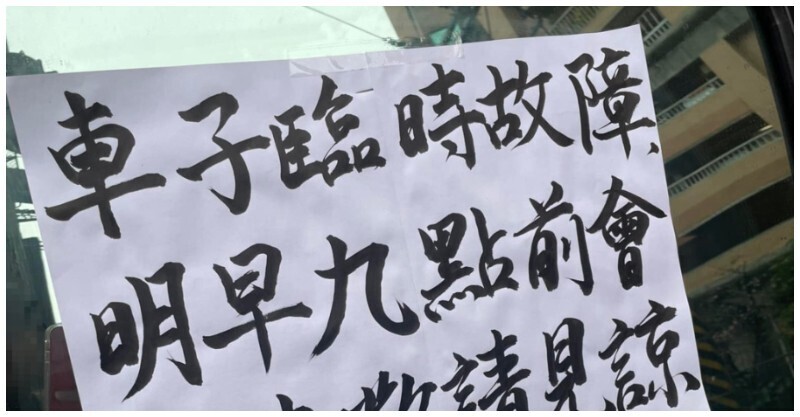 車子臨時故障、
明早九點前會
請見諒